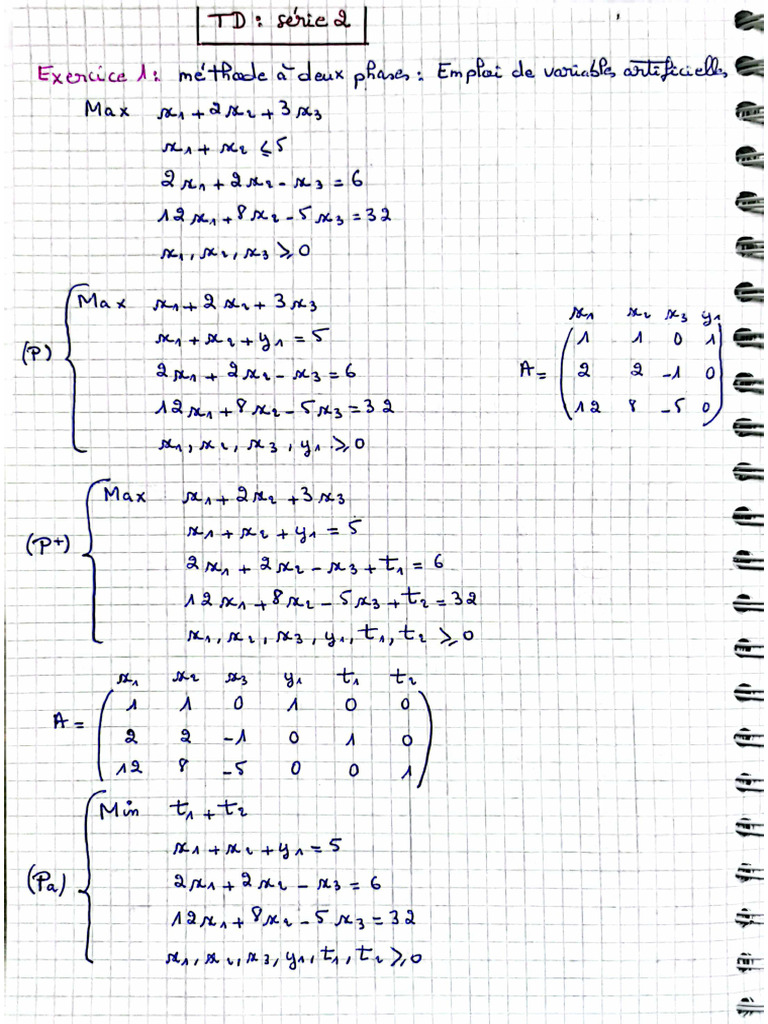 TD : série 2
Exercice 1 : méthode à deux phases : Emploi de variables artificielles
Max x₁ + 2x₂ + 3x₃
x₁ + x₂ ≤ 5
2x₁ + 2x₂ - x₃ = 6
12x₁ + 8x₂ - 5x₃ = 32
x₁, x₂, x₃ ≥ 0
(P)
Max x₁ + 2x₂ + 3x₃
x₁ + x₂ + y₁ = 5
2x₁ + 2x₂ - x₃ = 6
12x₁ + 8x₂ - 5x₃ = 32
x₁, x₂, x₃, y₁ ≥ 0
x₁ x₂ x₃ y₁
1 1 0 1
A = 2 2 -1 0
12 8 -5 0
(P+)
Max x₁ + 2x₂ + 3x₃
x₁ + x₂ + y₁ = 5
2x₁ + 2x₂ - x₃ + t₁ = 6
12x₁ + 8x₂ - 5x₃ + t₂ = 32
x₁, x₂, x₃, y₁, t₁, t₂ ≥ 0
x₁ x₂ x₃ y₁ t₁ t₂
1 1 0 1 0 0
A = 2 2 -1 0 1 0
12 8 -5 0 0 1
(Pa)
Min t₁ + t₂
x₁ + x₂ + y₁ = 5
2x₁ + 2x₂ - x₃ = 6
12x₁ + 8x₂ - 5x₃ = 32
x₁, x₂, x₃, y₁, t₁, t₂ ≥ 0